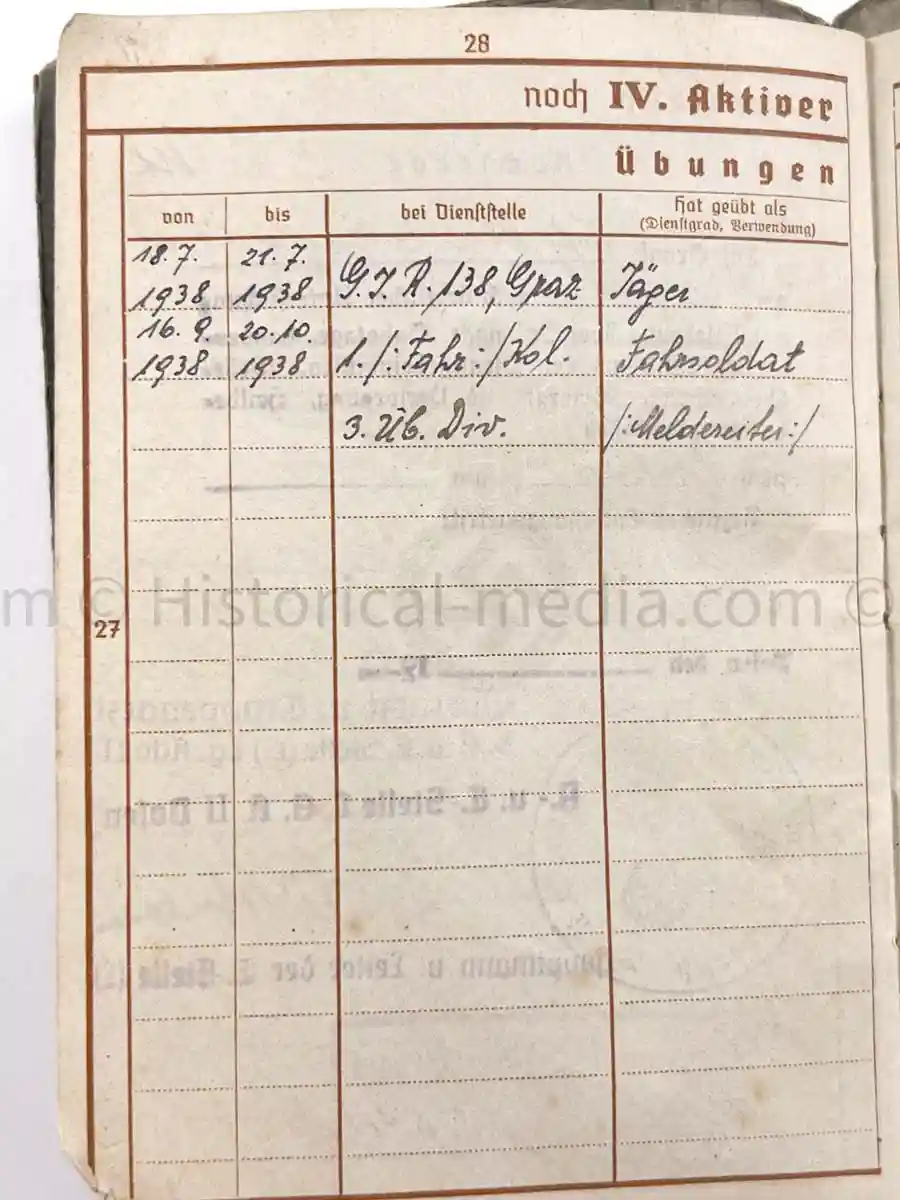 28
noch IV. Aktiver
Übungen
von bis bei Dienststelle Hat geübt als
(Dienstgrad, Verwendung)
18.7. 21.7.
1938 1938 G.I.R./138, Graz Jäger
16.9. 20.10.
1938 1938 1./:Fahr:/Kol. Fahrsoldat
3. Üb. Div. /:Meldereiter:/
m © Historical-media.com ©
27